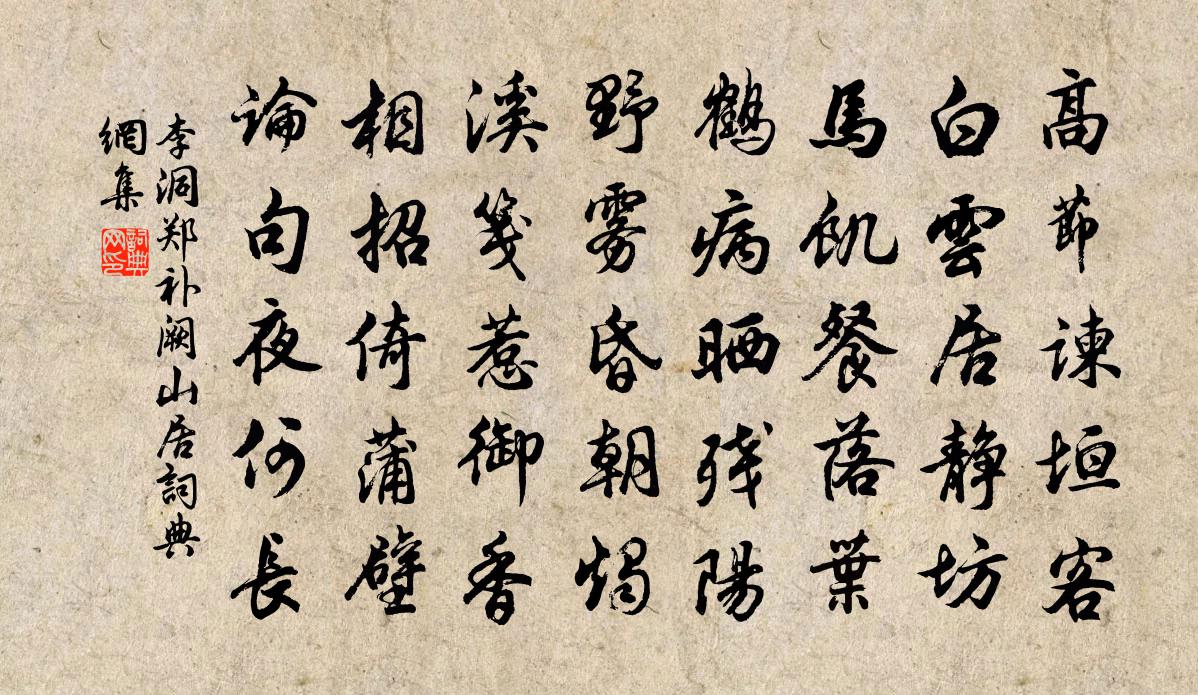 高節諫垣客
白雲居靜坊
馬飢餐落葉
鶴病晒残陽
野雾昏朝燭
溪箋惹御香
相招倚蒲壁
論句夜何長
李洞郑补阙山居詞典
網集
詞典网印